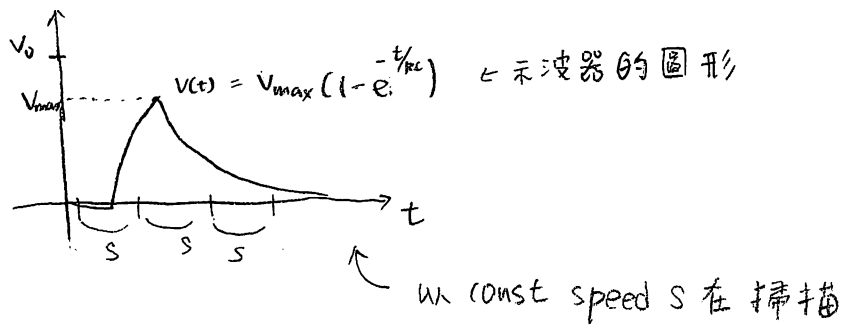 V₀
V(t) = Vmax(1-e^{-t/RC}) ← 示波器的圖形
Vmax
t
S S S
以 const speed S 在掃描